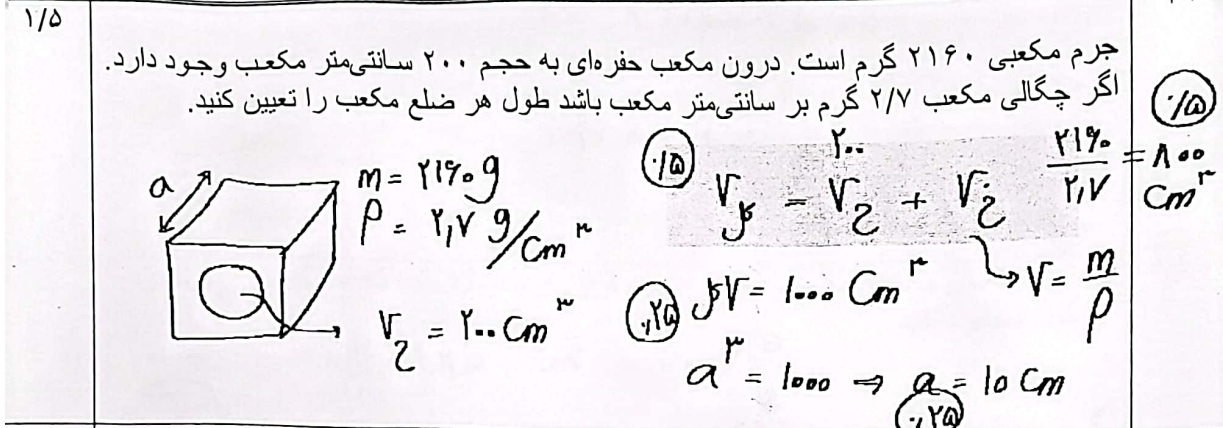 ۱/۵
جرم مکعبی ۲۱۶۰ گرم است. درون مکعب حفره‌ای به حجم ۲۰۰ سانتی‌متر مکعب وجود دارد.
اگر چگالی مکعب ۲/۷ گرم بر سانتی‌متر مکعب باشد طول هر ضلع مکعب را تعیین کنید.
a
m = ۲۱۶۰ g
ρ = ۲,۷ g/cm³
V ح = ۲۰۰ cm³
۰/۵
۲۰۰
V کل = V ح + V خ
۲۱۶۰/۲,۷ = ۸۰۰ cm³
۰/۵
V = m/ρ
۰,۲۵
V کل = ۱۰۰۰ cm³
a³ = ۱۰۰۰ ⇒ a = ۱۰ cm
۰,۲۵